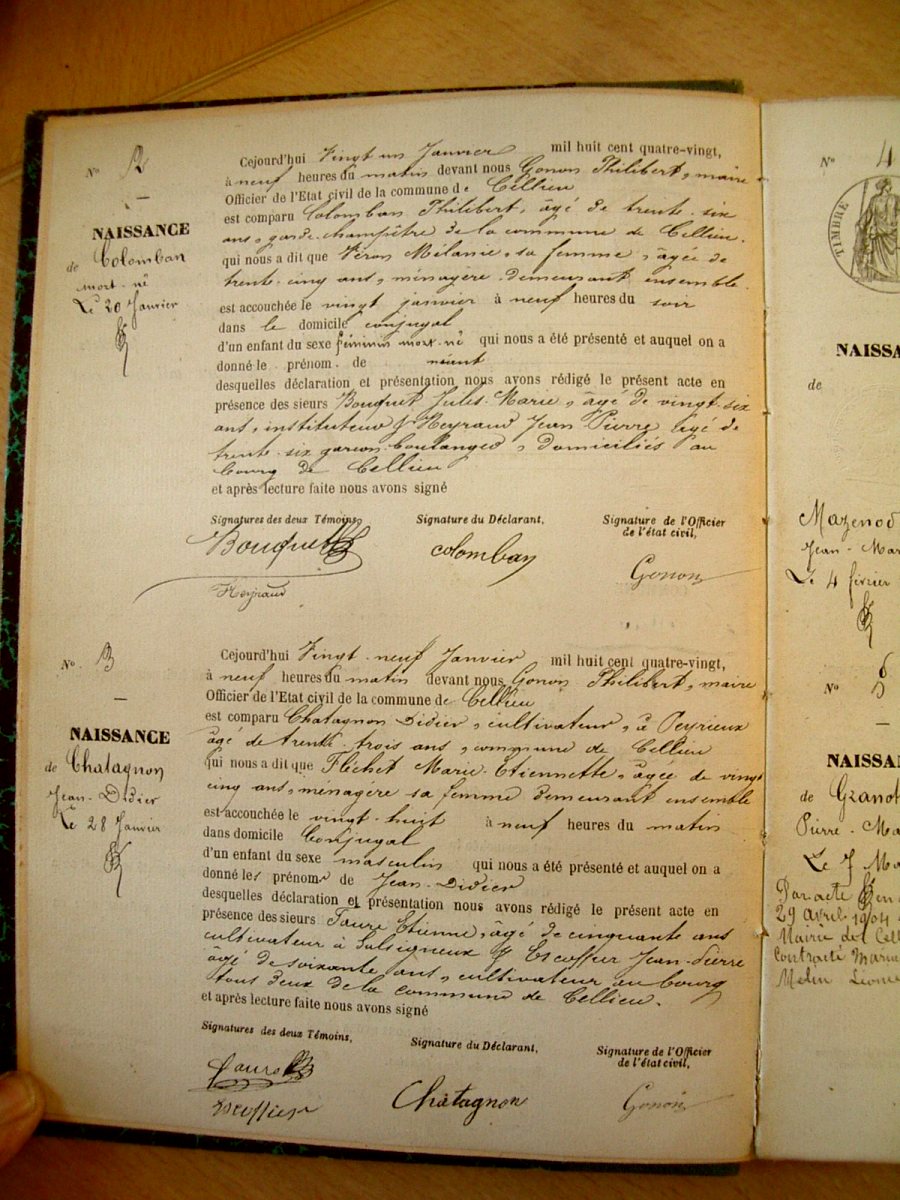 N° 2
NAISSANCE
de Colomban
mort-né
Le 20 Janvier
Cejourd'hui Vingt un Janvier mil huit cent quatre-vingt,
à neuf heures du matin devant nous Gonon Philibert, maire
Officier de l'Etat civil de la commune de Cellieu
est comparu Colomban Philibert, âgé de trente-six
ans, garde-champêtre de la commune de Cellieu.
qui nous a dit que Véron Mélanie, sa femme, âgée de
trente-cinq ans, ménagère demeurant ensemble
est accouchée le vingt janvier à neuf heures du soir
dans le domicile conjugal
d'un enfant du sexe féminin mort-né qui nous a été présenté et auquel on a
donné le prénom de néant
desquelles déclaration et présentation nous avons rédigé le présent acte en
présence des sieurs Bouquet Jules-Marie, âgé de vingt-six
ans, instituteur & Heyraud Jean Pierre âgé de
trente-six garçon boulanger, domiciliés au
bourg de Cellieu
et après lecture faite nous avons signé
Signatures des deux Témoins, Signature du Déclarant, Signature de l'Officier
de l'état civil,
Bouquet colomban Gonon
Heyraud
N° 3
NAISSANCE
de Chatagnon
Jean-Didier
Le 28 Janvier
Cejourd'hui Vingt-neuf Janvier mil huit cent quatre-vingt,
à neuf heures du matin devant nous Gonon Philibert, maire
Officier de l'Etat civil de la commune de Cellieu
est comparu Chatagnon Didier, cultivateur, à Peyrieux
âgé de trente trois ans, commune de Cellieu
qui nous a dit que Fléchet Marie-Etiennette, âgée de vingt
cinq ans, ménagère sa femme demeurant ensemble
est accouchée le vingt-huit à neuf heures du matin
dans domicile Conjugal
d'un enfant du sexe masculin qui nous a été présenté et auquel on a
donné les prénoms de Jean-Didier
desquelles déclaration et présentation nous avons rédigé le présent acte en
présence des sieurs Faure Etienne, âgé de cinquante ans
cultivateur à Salsigneux & Escoffier Jean-Pierre
âgé de soixante ans, cultivateur au bourg
tous deux de la commune de Cellieu.
et après lecture faite nous avons signé
Signatures des deux Témoins, Signature du Déclarant, Signature de l'Officier
de l'état civil,
Faure Chatagnon Gonon
Escoffier
N° 4
TIMBRE
NAISSA
de
Mazenod
Jean-Mar
Le 4 février
N° 5
NAISSAN
de Granot
Pierre-Ma
Le 7 Ma
Par acte
29 avril 1904
Mairie de Cell
contracté Maria
Melin Léonie